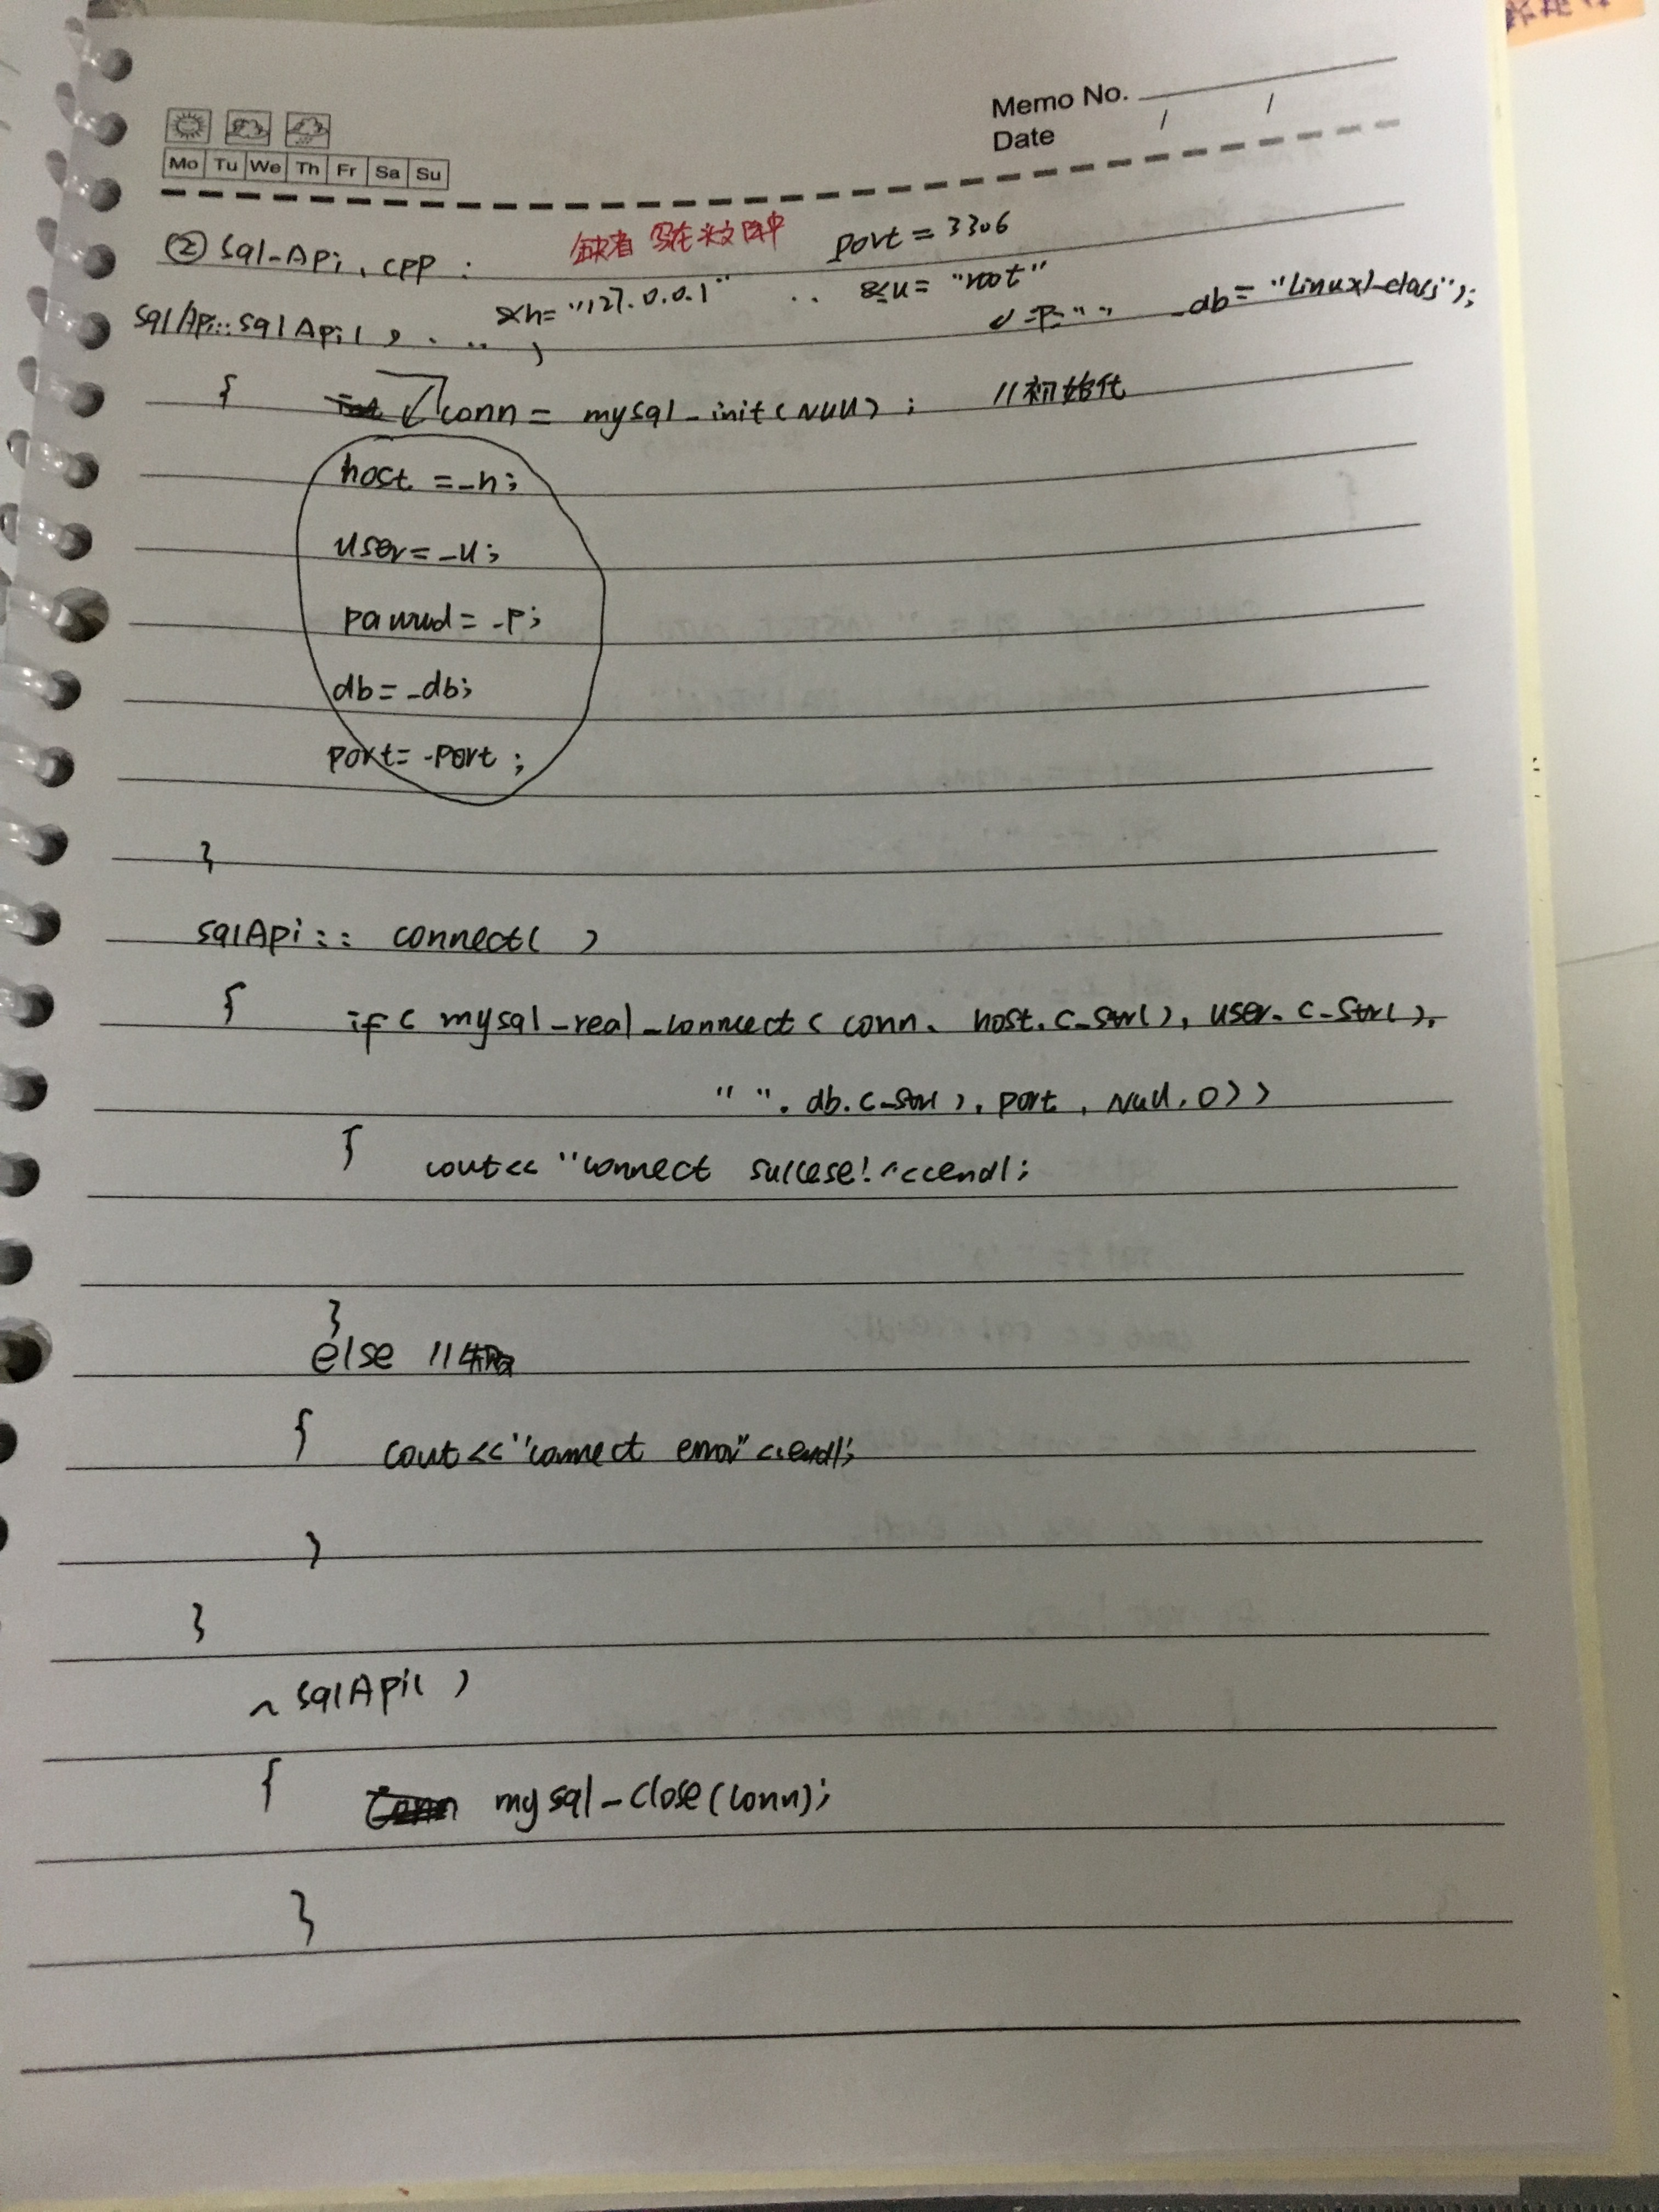 Memo No.
Date / /
Mo Tu We Th Fr Sa Su
② sql-Api.cpp :
port = 3306
&h= "127.0.0.1" .. &u= "root"
_p=" " _db= "Linux1-class");
sqlApi::sqlApi( ) . .. )
{ conn = mysql_init(NULL) ; //初始化
host =_h;
user=_u;
passwd= _p;
db=_db;
port=_port ;
}
sqlApi:: connect( )
{ if( mysql_real_connect( conn, host.c_str(), user.c_str(),
" ", db.c_str(), port , NULL, 0))
{ cout<< "connect succese!"<<endl;
}
else //
{ cout<<"connect error"<<endl;
}
}
~sqlApi( )
{ mysql-close(conn);
}